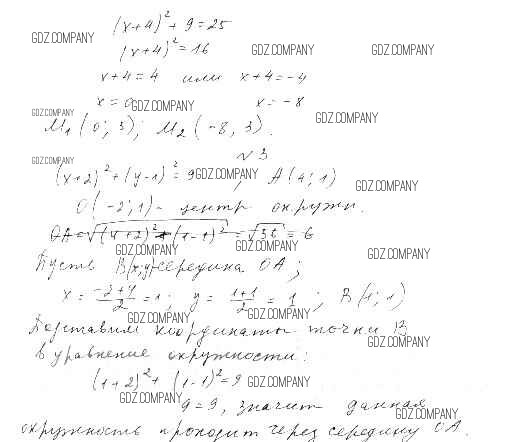 (x+4)² + 9 = 25
GDZ.COMPANY
(x+4)² = 16 GDZ.COMPANY GDZ.COMPANY
x+4 = 4 или x+4 = -4
x = 0 GDZ.COMPANY x = -8
GDZ.COMPANY GDZ.COMPANY
M₁(0; 3); M₂(-8, 3).
№3
GDZ.COMPANY
(x+2)² + (y-1)² = 9 GDZ.COMPANY, A(4; 1)
GDZ.COMPANY
O(-2; 1) - центр окружн.
OA = √(4+2)² + (1-1)² = √36 = 6
GDZ.COMPANY GDZ.COMPANY GDZ.COMPANY
Пусть B(x; y) середина OA;
x = (-2+4)/2 = 1; y = (1+1)/2 = 1; B(1; 1)
GDZ.COMPANY GDZ.COMPANY
Подставим координаты точки B
GDZ.COMPANY
в уравнение окружности:
(1+2)² + (1-1)² = 9 GDZ.COMPANY
GDZ.COMPANY
9 = 9, значит данная
GDZ.COMPANY
окружность проходит через середину OA.